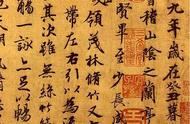 九年歲在癸丑暮
會稽山陰之蘭亭
賢畢至少長咸
領茂林脩竹又
帶左右引以為
其次雖無絲竹
觴一詠亦足以暢